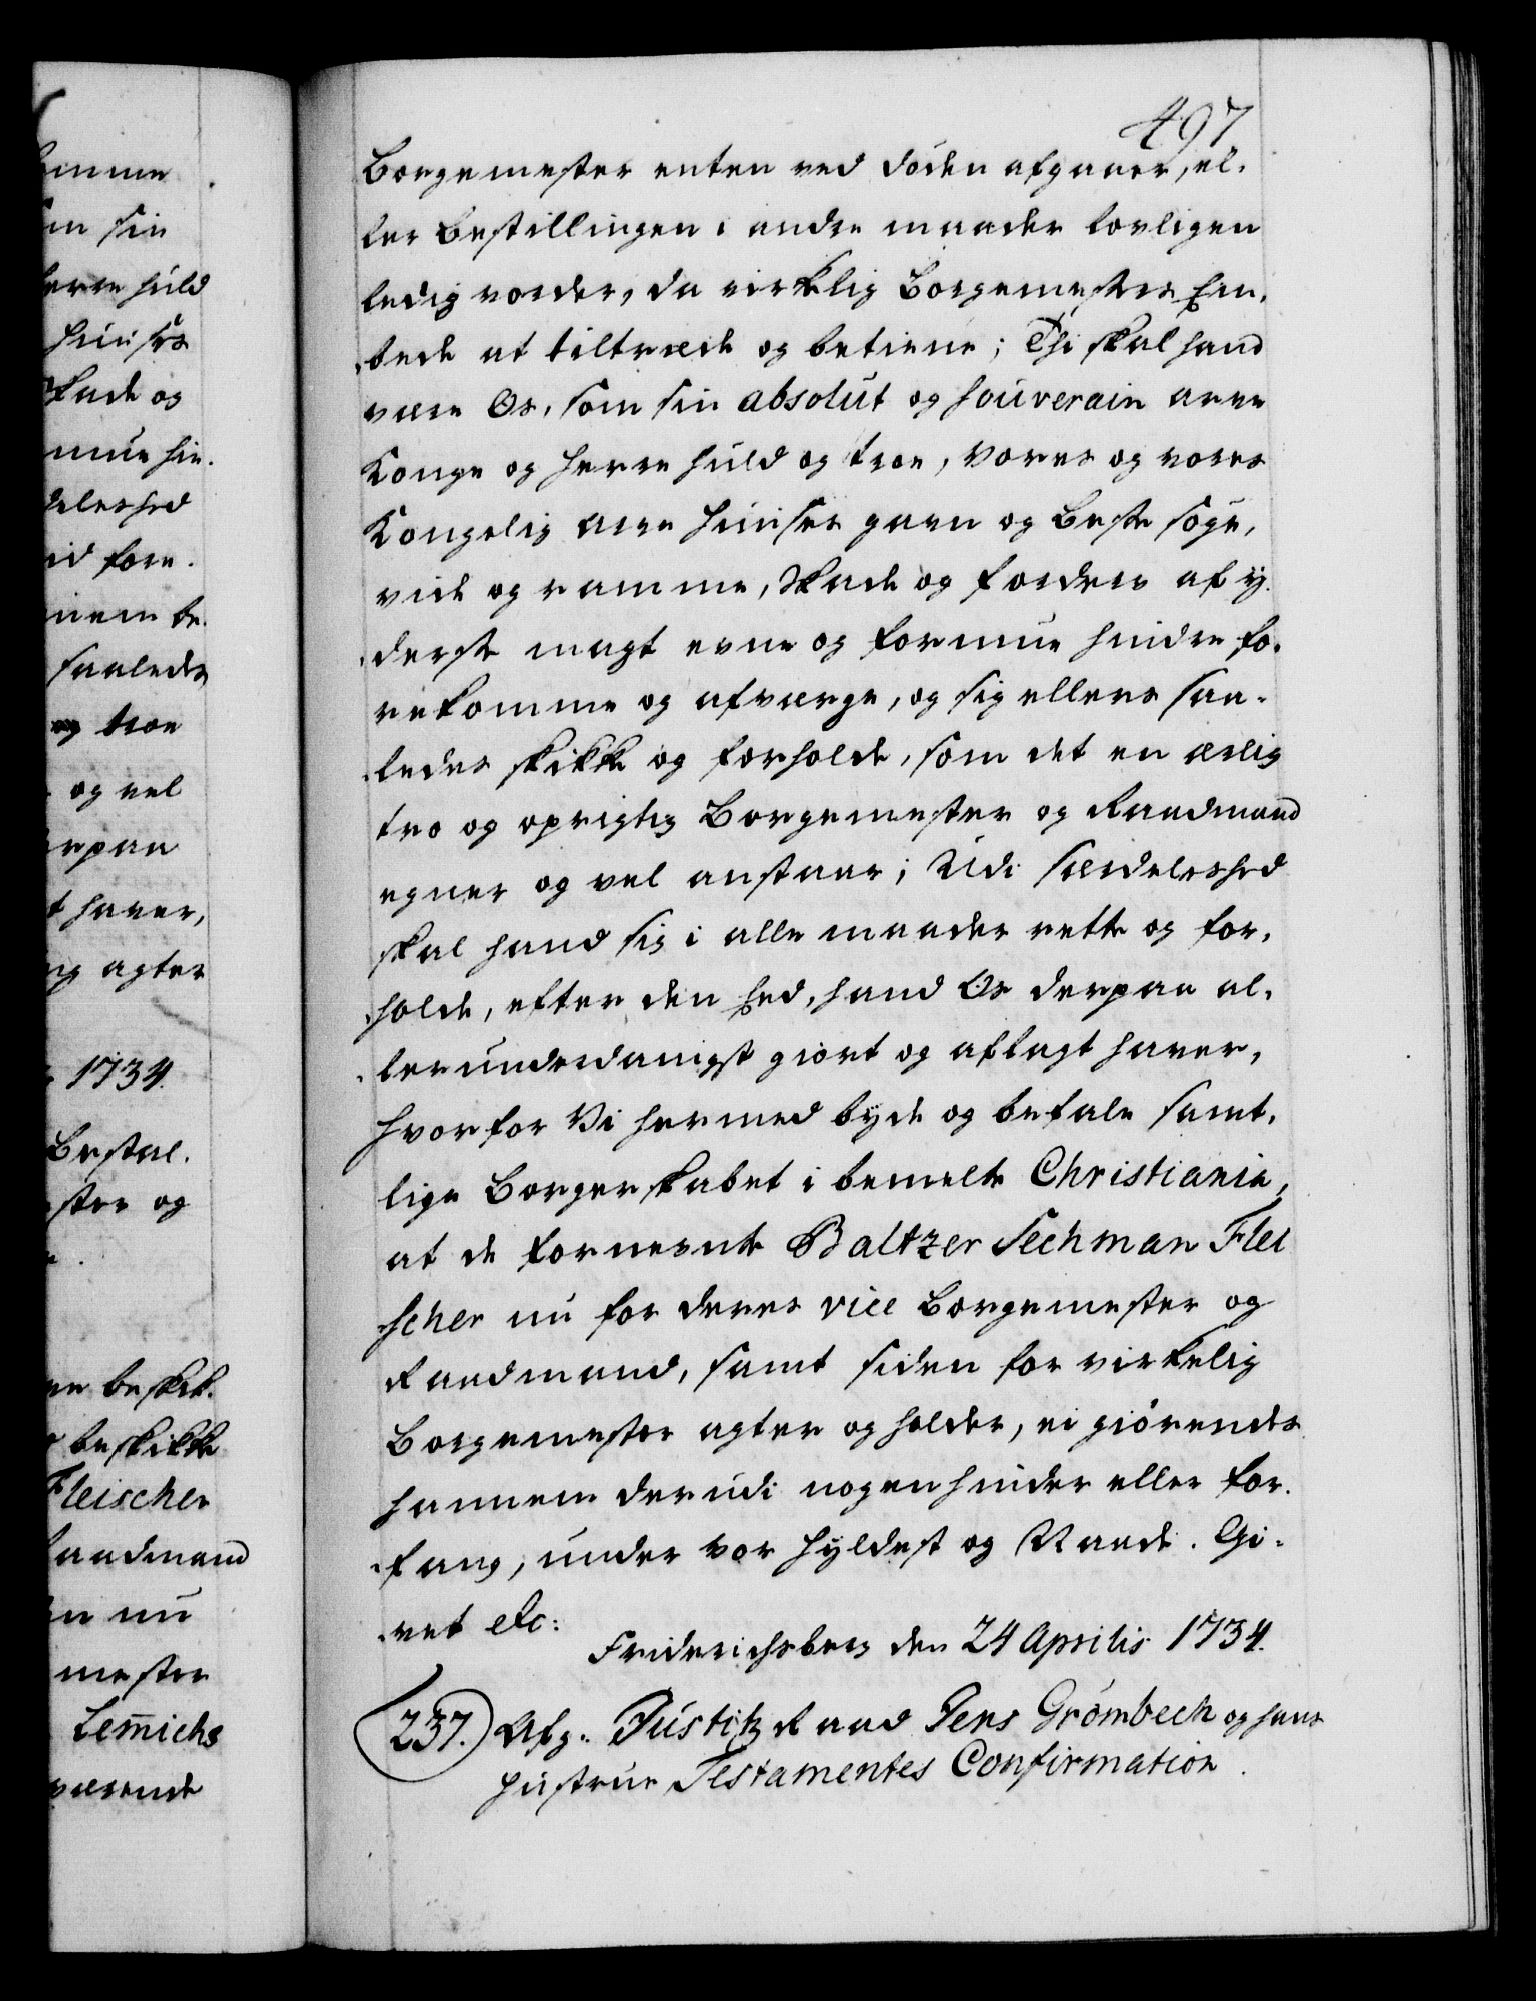 497
Borgemester enten ved döden afgaaer, el-
ler bestillingen i andre maader lovligen
ledig vorder, da virkelig Borgemesters Em-
bede at tiltræde og betiene; Thi skal hand
være Os, som sin absolut og souverain arve
Konge og Herre huld og troe, Vores og vores
Kongelig Arve Huuses gavn og Beste söge,
vide og ramme, Skade og fordærv af y-
derste magt evne og formue hindre fo-
rekomme og afværge, og sig ellers saa-
ledes skikke og forholde, som det en ærlig
tro og oprigtig Borgemester og Raadmand
egner og vel anstaaer; Udi særdeleshed
skal hand sig i alle maader rette og for-
holde, efter den Eed, hand Os derpaa al-
lerunderdanigst giort og aflagt haver,
Hvorfor Vi hermed byde og befale samt-
lige Borgerskabet i bemelte Christiania,
at de fornevnte Baltzer Sechman Flei
scher nu for deres vice Borgemester og
Raadmand, samt siden for virkelig
Borgemester agter og holder, ei giörendes
hannem derudi nogen hinder eller for-
fang, under vor Hyldest og Naade. Gi-
vet etc:
Friderichsberg den 24 Aprilis 1734.
237.) Afg. Justitz Raad Jens Grömbech og hans
Hustrue Testamentes Confirmation.
1734.
Bestal-
ster og
beskikke
Fleischer
aadmand
nu
mester
Lem̄ichs
værende